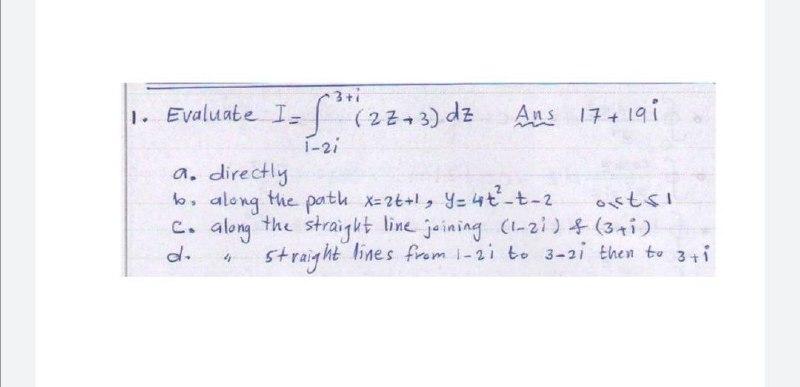 1. Evaluate I = ∫_{1-2i}^{3+i} (2z+3) dz Ans 17+19i
a. directly
b. along the path x=2t+1, y=4t²-t-2 0≤t≤1
c. along the straight line joining (1-2i) & (3+i)
d. " straight lines from 1-2i to 3-2i then to 3+i